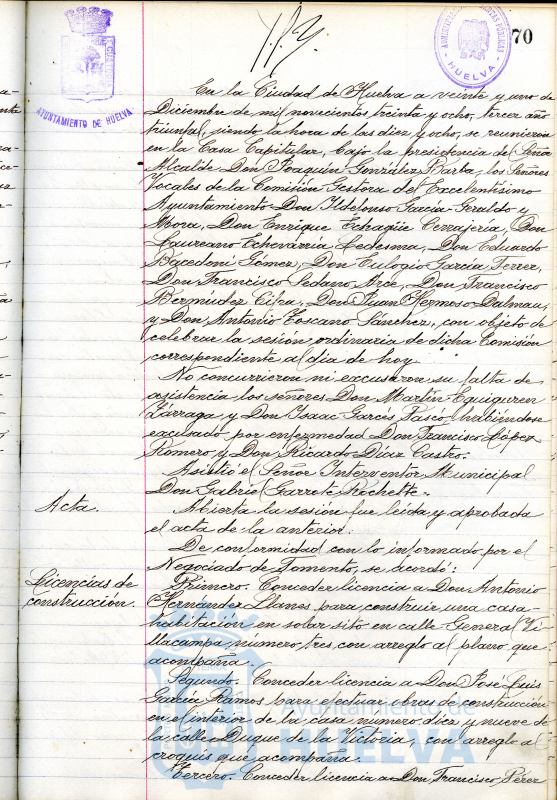 70
AYUNTAMIENTO DE HUELVA
HUELVA
En la Ciudad de Huelva a veinte y uno de
Diciembre de mil novecientos treinta y ocho, tercer año
triunfal, siendo la hora de las diez y ocho, se reunieron
en la Casa Capitular, bajo la presidencia del Señor
Alcalde Don Joaquín González Barba, los Señores
Vocales de la Comisión Gestora del Excelentísimo
Ayuntamiento Don Ildefonso García Geraldo y
Mora, Don Enrique Echagüe Cerrajería, Don
Laureano Echevarría Ledesma, Don Eduardo
Bacedoni Gómez, Don Eulogio García Ferrer,
Don Francisco Sedano Arce, Don Francisco
Bermúdez Cifra, Don Juan Hermoso Dalmau,
y Don Antonio Toscano Sánchez, con objeto de
celebrar la sesión ordinaria de dicha Comisión
correspondiente al día de hoy.
No concurrieron ni excusaron su falta de
asistencia los señores Don Martín Eguiguren
Zárraga y Don Isaac Garcés Pascó, habiéndose
excusado por enfermedad Don Francisco López
Romero y Don Ricardo Díaz Castro.
Asistió el Señor Interventor Municipal
Don Gabriel Garrote Rochette.
Acta.
Abierta la sesión fue leida y aprobada
el acta de la anterior.
De conformidad con lo informado por el
Negociado de Fomento, se acordó:
Licencias de
construcción.
Primero. Conceder licencia a Don Antonio
Hernández Llanes para construir una casa-
habitación en solar sito en calle General Vi-
llacampa, número tres, con arreglo al plano que
acompaña.
Segundo. Conceder licencia a Don José Luis
García Ramos para efectuar obras de construcción
en el interior de la casa numero diez y nueve de
la calle Duque de la Victoria, con arreglo al
croquis que acompaña.
Tercero. Conceder licencia a Don Francisco Pérez
Ayuntamiento de
HUELVA